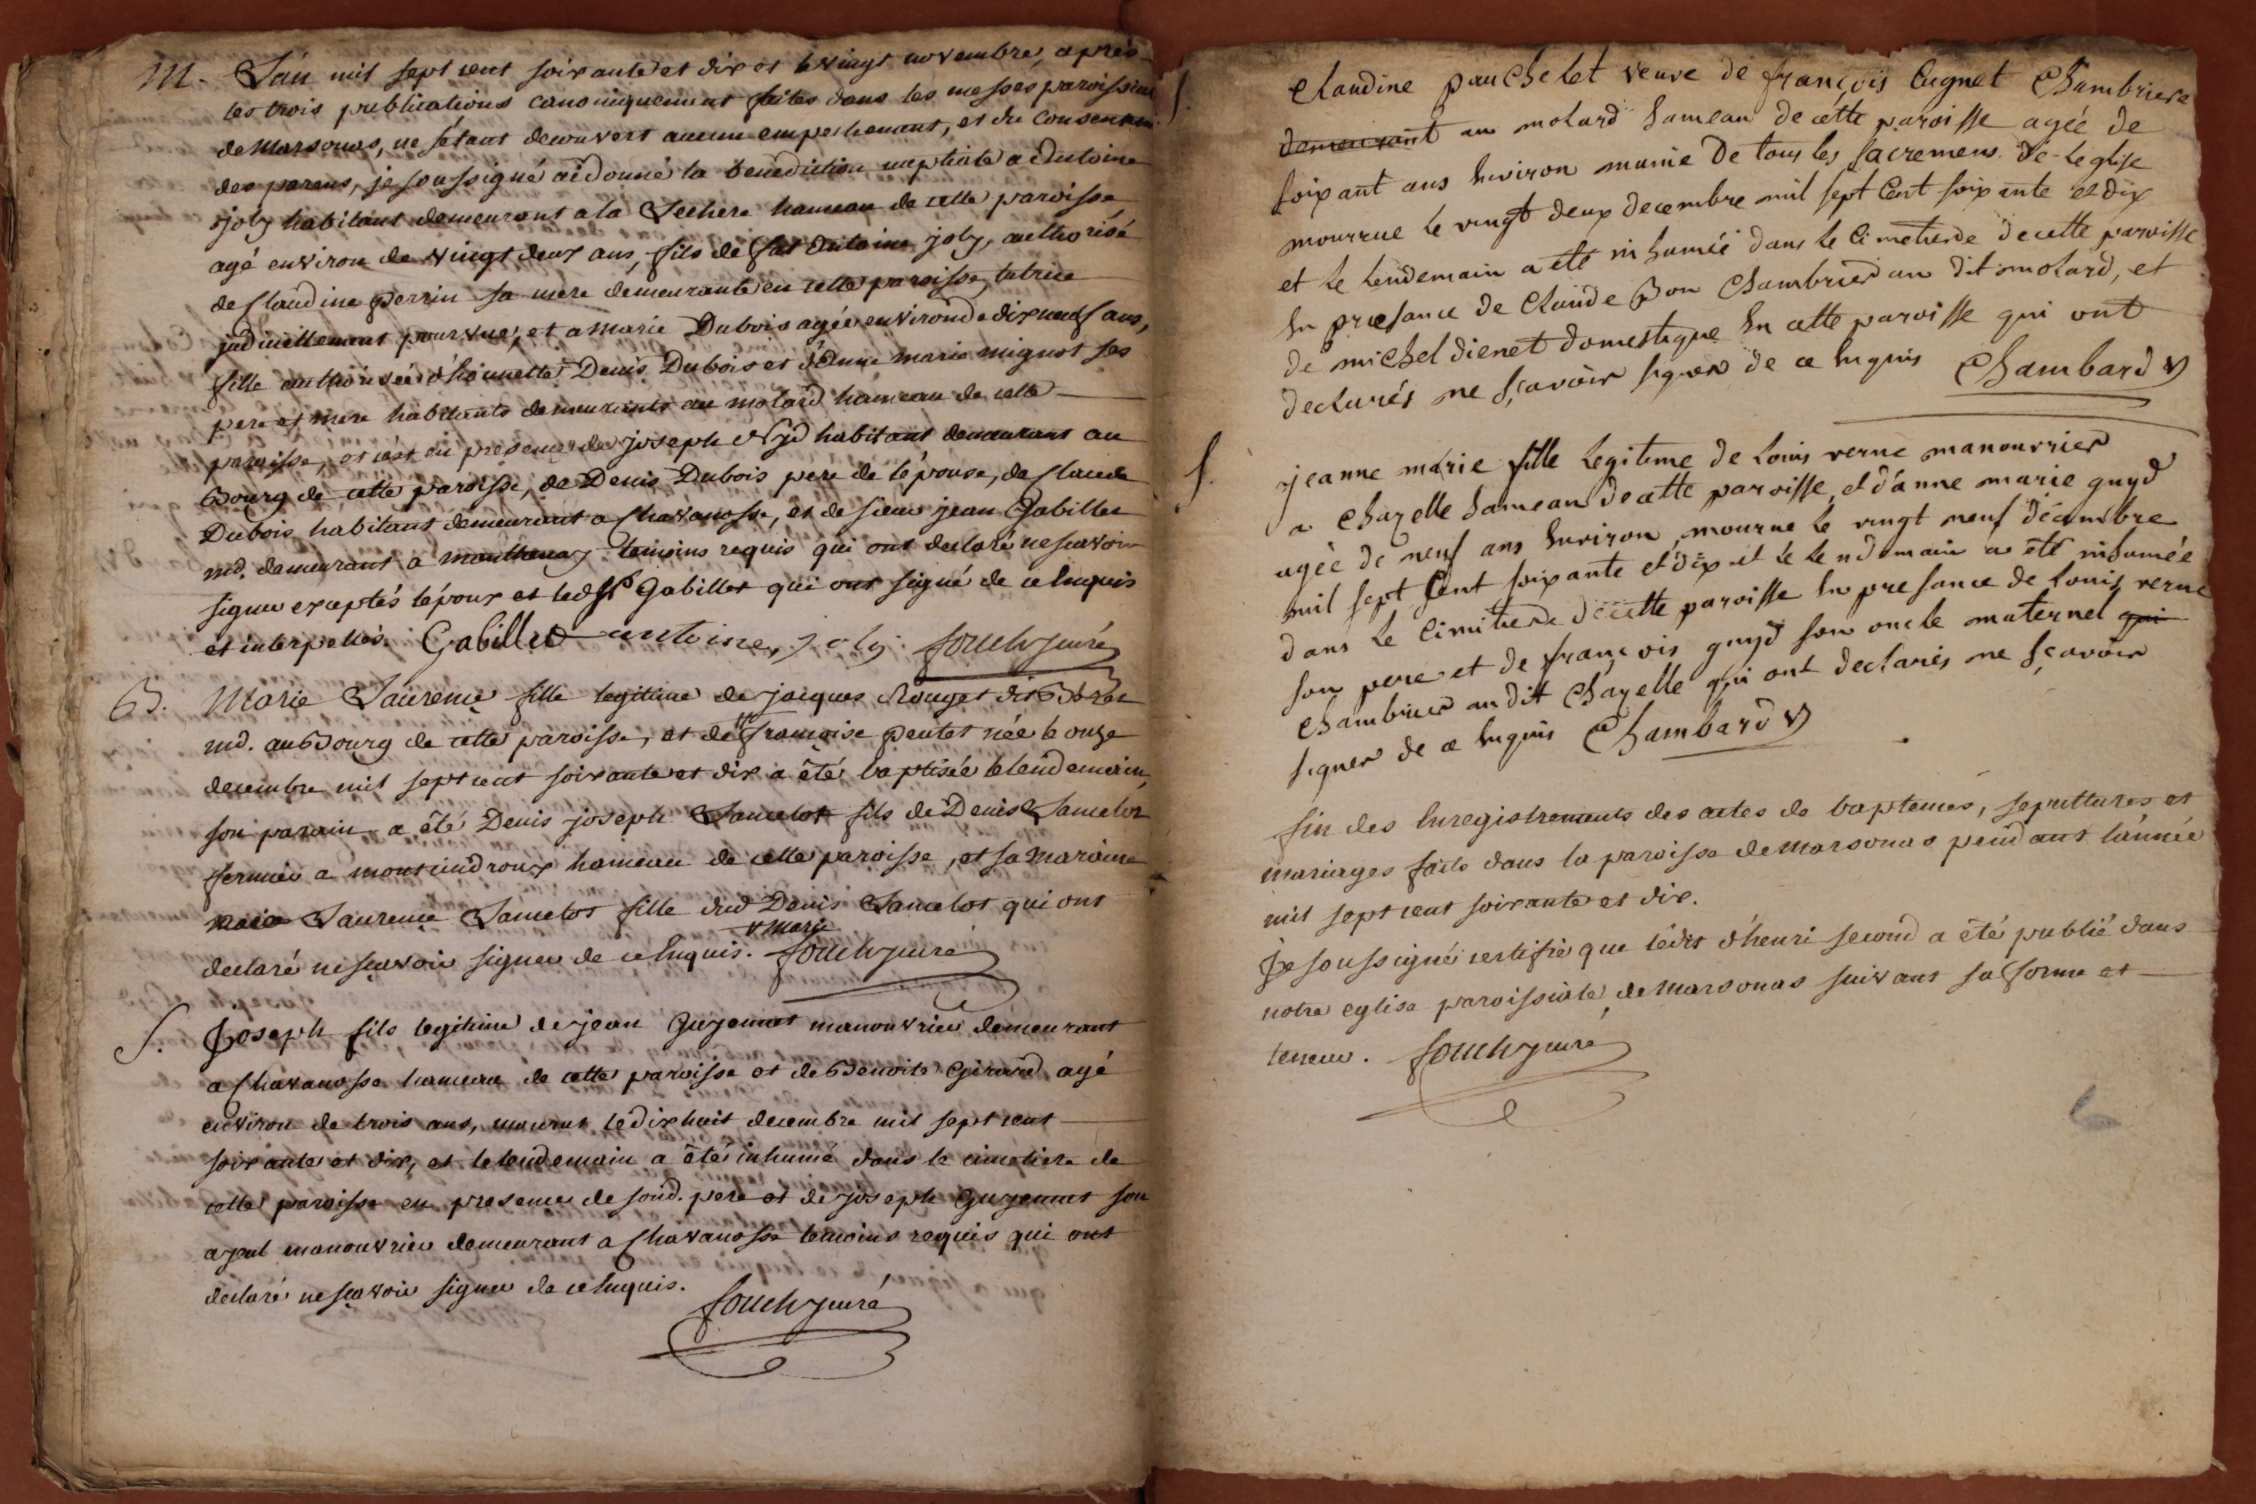 M. L'an mil sept cent soixante et dix et le vingt novembre, après
les trois publications canoniquement faites dans les messes paroissiales
de Marsonas, ne s'étant decouvert aucun empechement, et du consentem.
des parens, je soussigné ai donné la bénédiction nuptiale a Antoine
joly habitant demeurant a la Sechere hameau de cette paroisse
agé environ de vingt deux ans, fils de fut Antoine joly, authorisé
de Claudine perrin sa mere demeurante en cette paroisse, tutrice
judiciellement pourvue, et a Marie Dubois agée environ de dix neuf ans,
fille authorisée d'honnette Denis Dubois et d'Anne Marie mignot ses
pere et mere habitants demeurants au molard hameau de cette
paroisse, et c'est en presence de joseph Nyd habitant demeurant au
Bourg de cette paroisse, de Denis Dubois pere de l'épouse, de Claude
Dubois habitant demeurant a Chavanosse, et de sieur jean Gabillet
md. demeurant a temoins requis qui ont declaré ne scavoir
signer exceptés l'époux et led. Sr Gabillet qui ont signé de ce Enquis
et interpellés. Gabillet antoine joly fouchy curé
B. Marie Laurence fille legitime de jacques Rouget dit
md. au Bourg de cette paroisse, et de françoise peutet née le onze
decembre mil sept cent soixante et dix a été baptisée le lendemain,
son parain a été Denis joseph Lancelot fils de Denis Lancelot
fermier a montcindroux hameau de cette paroisse, et sa maraine
Laurence Lancelot fille dud Denis Lancelot qui ont
Marie
declaré ne scavoir signer de ce Enquis. fouchy curé
S. Joseph fils legitime de jean Guyennet manouvrier demeurant
a Chavanosse hameau de cette paroisse et de Benoite Girard agé
environ de trois ans, mourut le dix huit decembre mil sept cent
soixante et dix, et le lendemain a été inhumé dans le cimetiere de
cette paroisse en presence de sond. pere et de joseph Guyennet son
ayeul manouvrier demeurant a Chavanosse temoins requis qui ont
declaré ne scavoir signer de ce Enquis.
fouchy curé
S. Claudine pauchelet veuve de françois Cugnet Chambriere
demeurant au molard hameau de cette paroisse agée de
soixant ans Environ munie De tous les sacremens de Leglise
mourrue le vingt deux decembre mil sept Cent soixante et dix
et le lendemain a eté inhumée dans le Cimetierre de cette paroisse
En presance de Claude Bon Chambrier au dit molard, et
de michel dienet domestique En cette paroisse qui ont
declarés ne sçavoir signer de ce Enquis Chambard v
S. jeanne marie fille Legitime de Louis verne manouvrier
a Chazelle hameau de cette paroisse, et d'anne marie guyd
agée de neuf ans Environ, mourue le vingt neuf decembre
mil sept Cent soixante et dix et le lendemain a eté inhumée
dans le Cimitiere de cette paroisse En presance de Louis verne
son pere et de françois guyd son oncle maternel qui
Chambrier au dit Chazelle qui ont declarés ne sçavoir
signer de ce Enquis Chambard v
fin des Enregistrements des actes de baptemes, sepultures et
mariages faits dans la paroisse de Marsonas pendant l'année
mil sept cent soixante et dix.
Je soussigné certifie que l'édit d'henri second a été publié dans
notre eglise paroissiale de Marsonas suivant sa forme et
teneur. fouchy curé